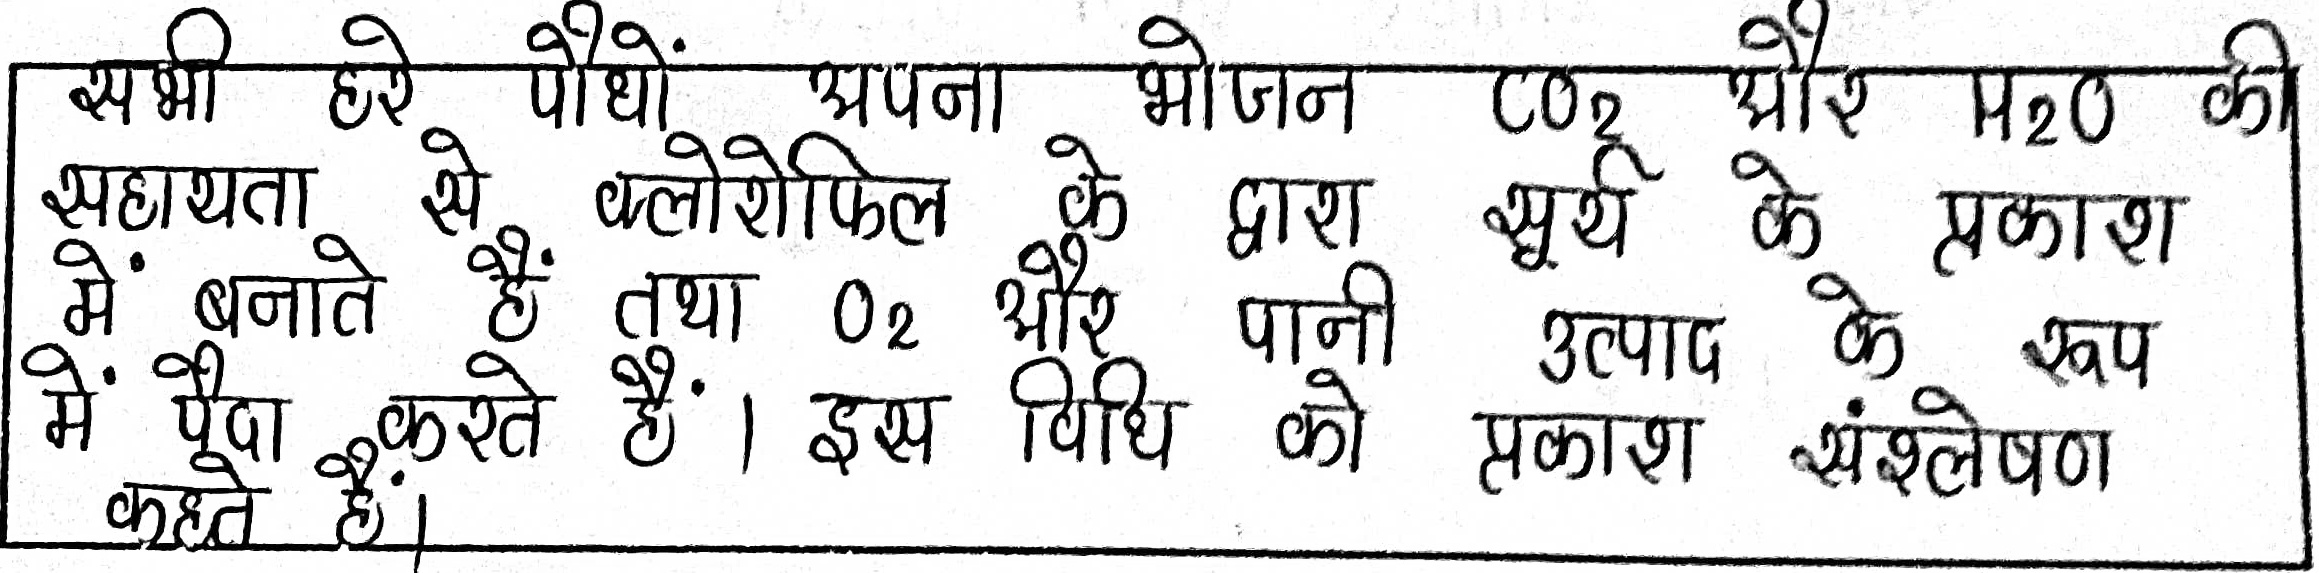 सभी हरे पौधों अपना भोजन CO2 और H2O की
सहायता से क्लोरोफिल के द्वारा सूर्य के प्रकाश
में बनाते हैं तथा O2 और पानी उत्पाद के रूप
में पैदा करते हैं। इस विधि को प्रकाश संश्लेषण
कहते हैं।